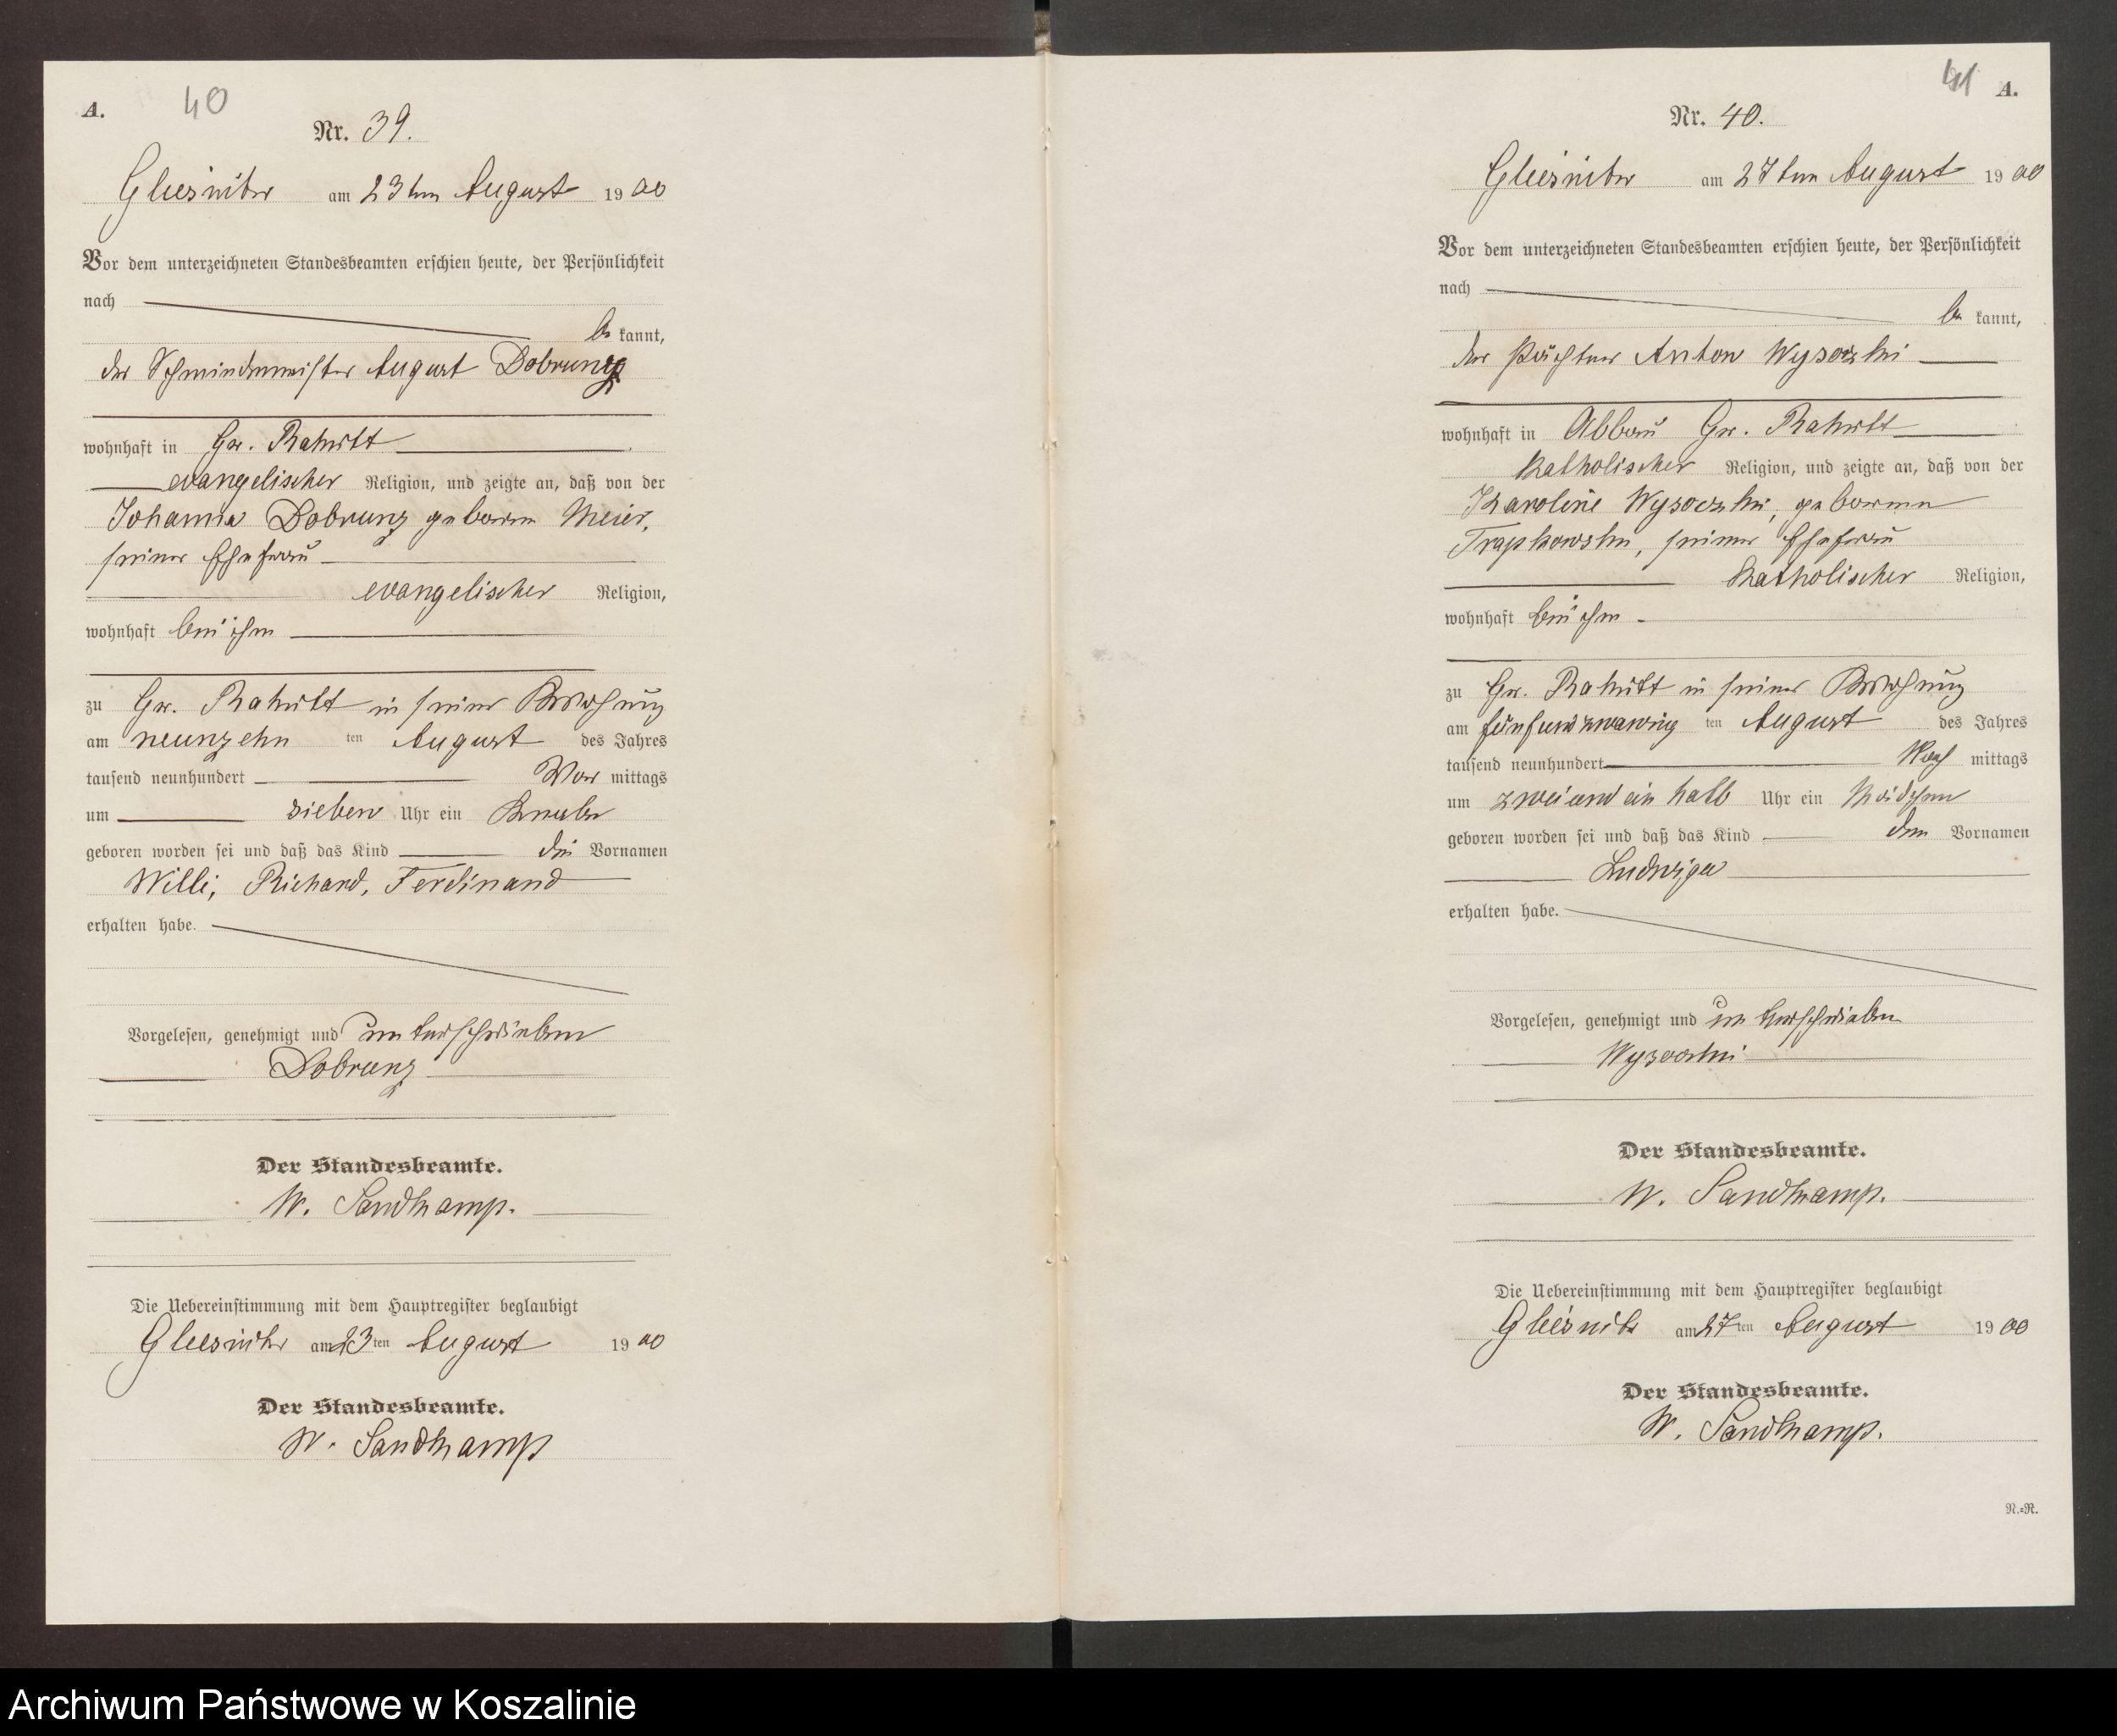 A.
40
Nr. 39.
Gliesnitz am 23ten August 1900
Vor dem unterzeichneten Standesbeamten erschien heute, der Persönlichkeit
nach
be kannt,
der Schmiedemeister August Dobrunz
wohnhaft in Gr. Rakitt
evangelischer Religion, und zeigte an, daß von der
Johanna Dobrunz geborene Meier,
seiner Ehefrau
evangelischer Religion,
wohnhaft bei ihm
zu Gr. Rakitt in seiner Wohnung
am neunzehn ten August des Jahres
tausend neunhundert Vor mittags
um sieben Uhr ein Knabe
geboren worden sei und daß das Kind die Vornamen
Willi, Richard, Ferdinand
erhalten habe.
Vorgelesen, genehmigt und unterschrieben
Dobrunz
Der Standesbeamte.
W. Sandkamp.
Die Uebereinstimmung mit dem Hauptregister beglaubigt
Gliesnitz am 23ten August 1900
Der Standesbeamte.
W. Sandkamp
41
A.
Nr. 40.
Gliesnitz am 27ten August 1900
Vor dem unterzeichneten Standesbeamten erschien heute, der Persönlichkeit
nach
be kannt,
der Pächter Anton Wysoczki
wohnhaft in Abbau Gr. Rakitt
katholischer Religion, und zeigte an, daß von der
Karoline Wysoczki, geborene
Trapkowski, seiner Ehefrau
katholischer Religion,
wohnhaft bei ihm
zu Gr. Rakitt in seiner Wohnung
am fünfundzwanzig ten August des Jahres
tausend neunhundert Nach mittags
um zwei und ein halb Uhr ein Mädchen
geboren worden sei und daß das Kind den Vornamen
Ludwiga
erhalten habe.
Vorgelesen, genehmigt und unterschrieben
Wysoczki
Der Standesbeamte.
W. Sandkamp.
Die Uebereinstimmung mit dem Hauptregister beglaubigt
Gliesnitz am 27ten August 1900
Der Standesbeamte.
W. Sandkamp.
N.=R.
Archiwum Państwowe w Koszalinie